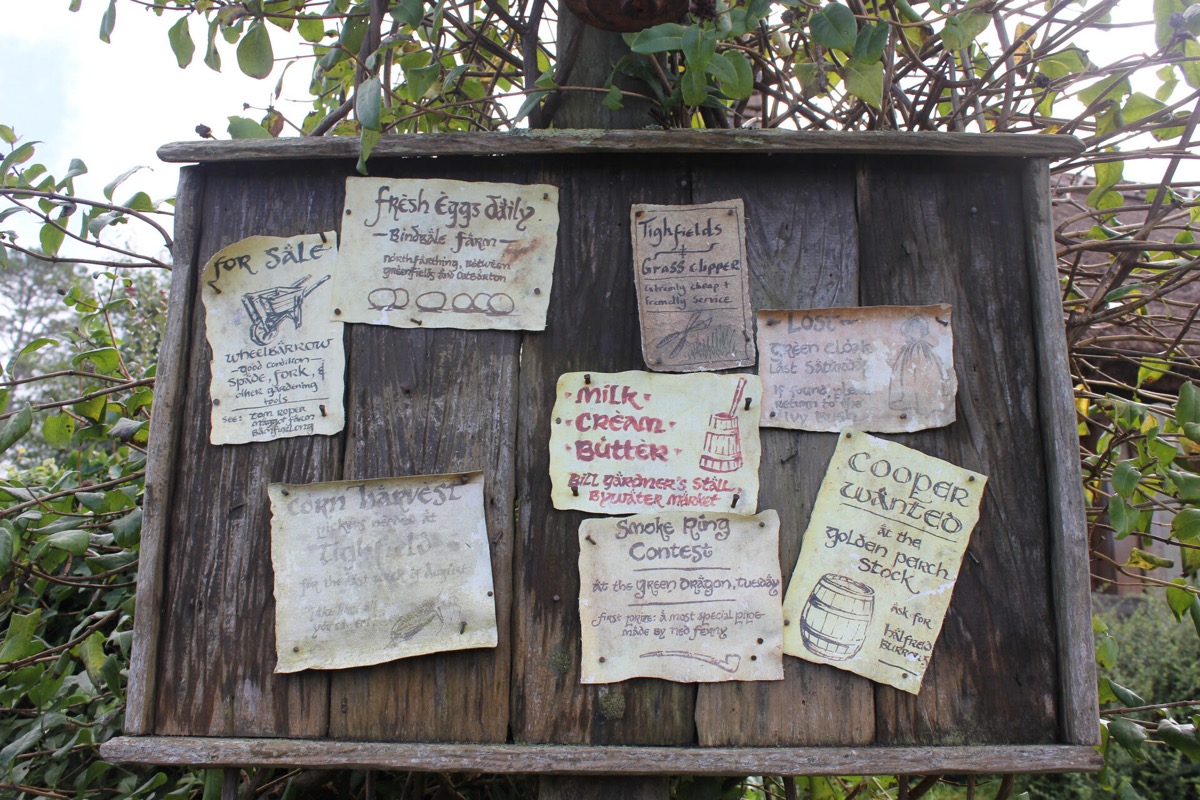 FOR SALE
WHEELBARROW
-GOOD CONDITION-
SPADE, FORK, &
OTHER GARDENING
TOOLS
SEE: TOM ROPER
MAGGOT FARM
BAMFURLONG
FRESH EGGS DAILY
-BINDBALE FARM-
NORTHFARTHING, BETWEEN
GREENFIELDS AND OATBARTON
Tighfields
+
Grass Clipper
Extremly cheap +
friendly service
LOST
GREEN CLOAK
LAST SATURDAY
If found, please
return to the
Ivy Bush
·MILK·
·CREAM·
·BUTTER·
BILL GARDNER'S STALL,
BYWATER MARKET
CORN HARVEST
needed at
Tighfield
for the last week of August
Smoke Ring
Contest
AT THE GREEN DRAGON, TUESDAY
first prize: a most special pipe-
made by Ted Ferny
COOPER
WANTED
at the
Golden Perch
Stock
Ask for
Halfred
Burrows